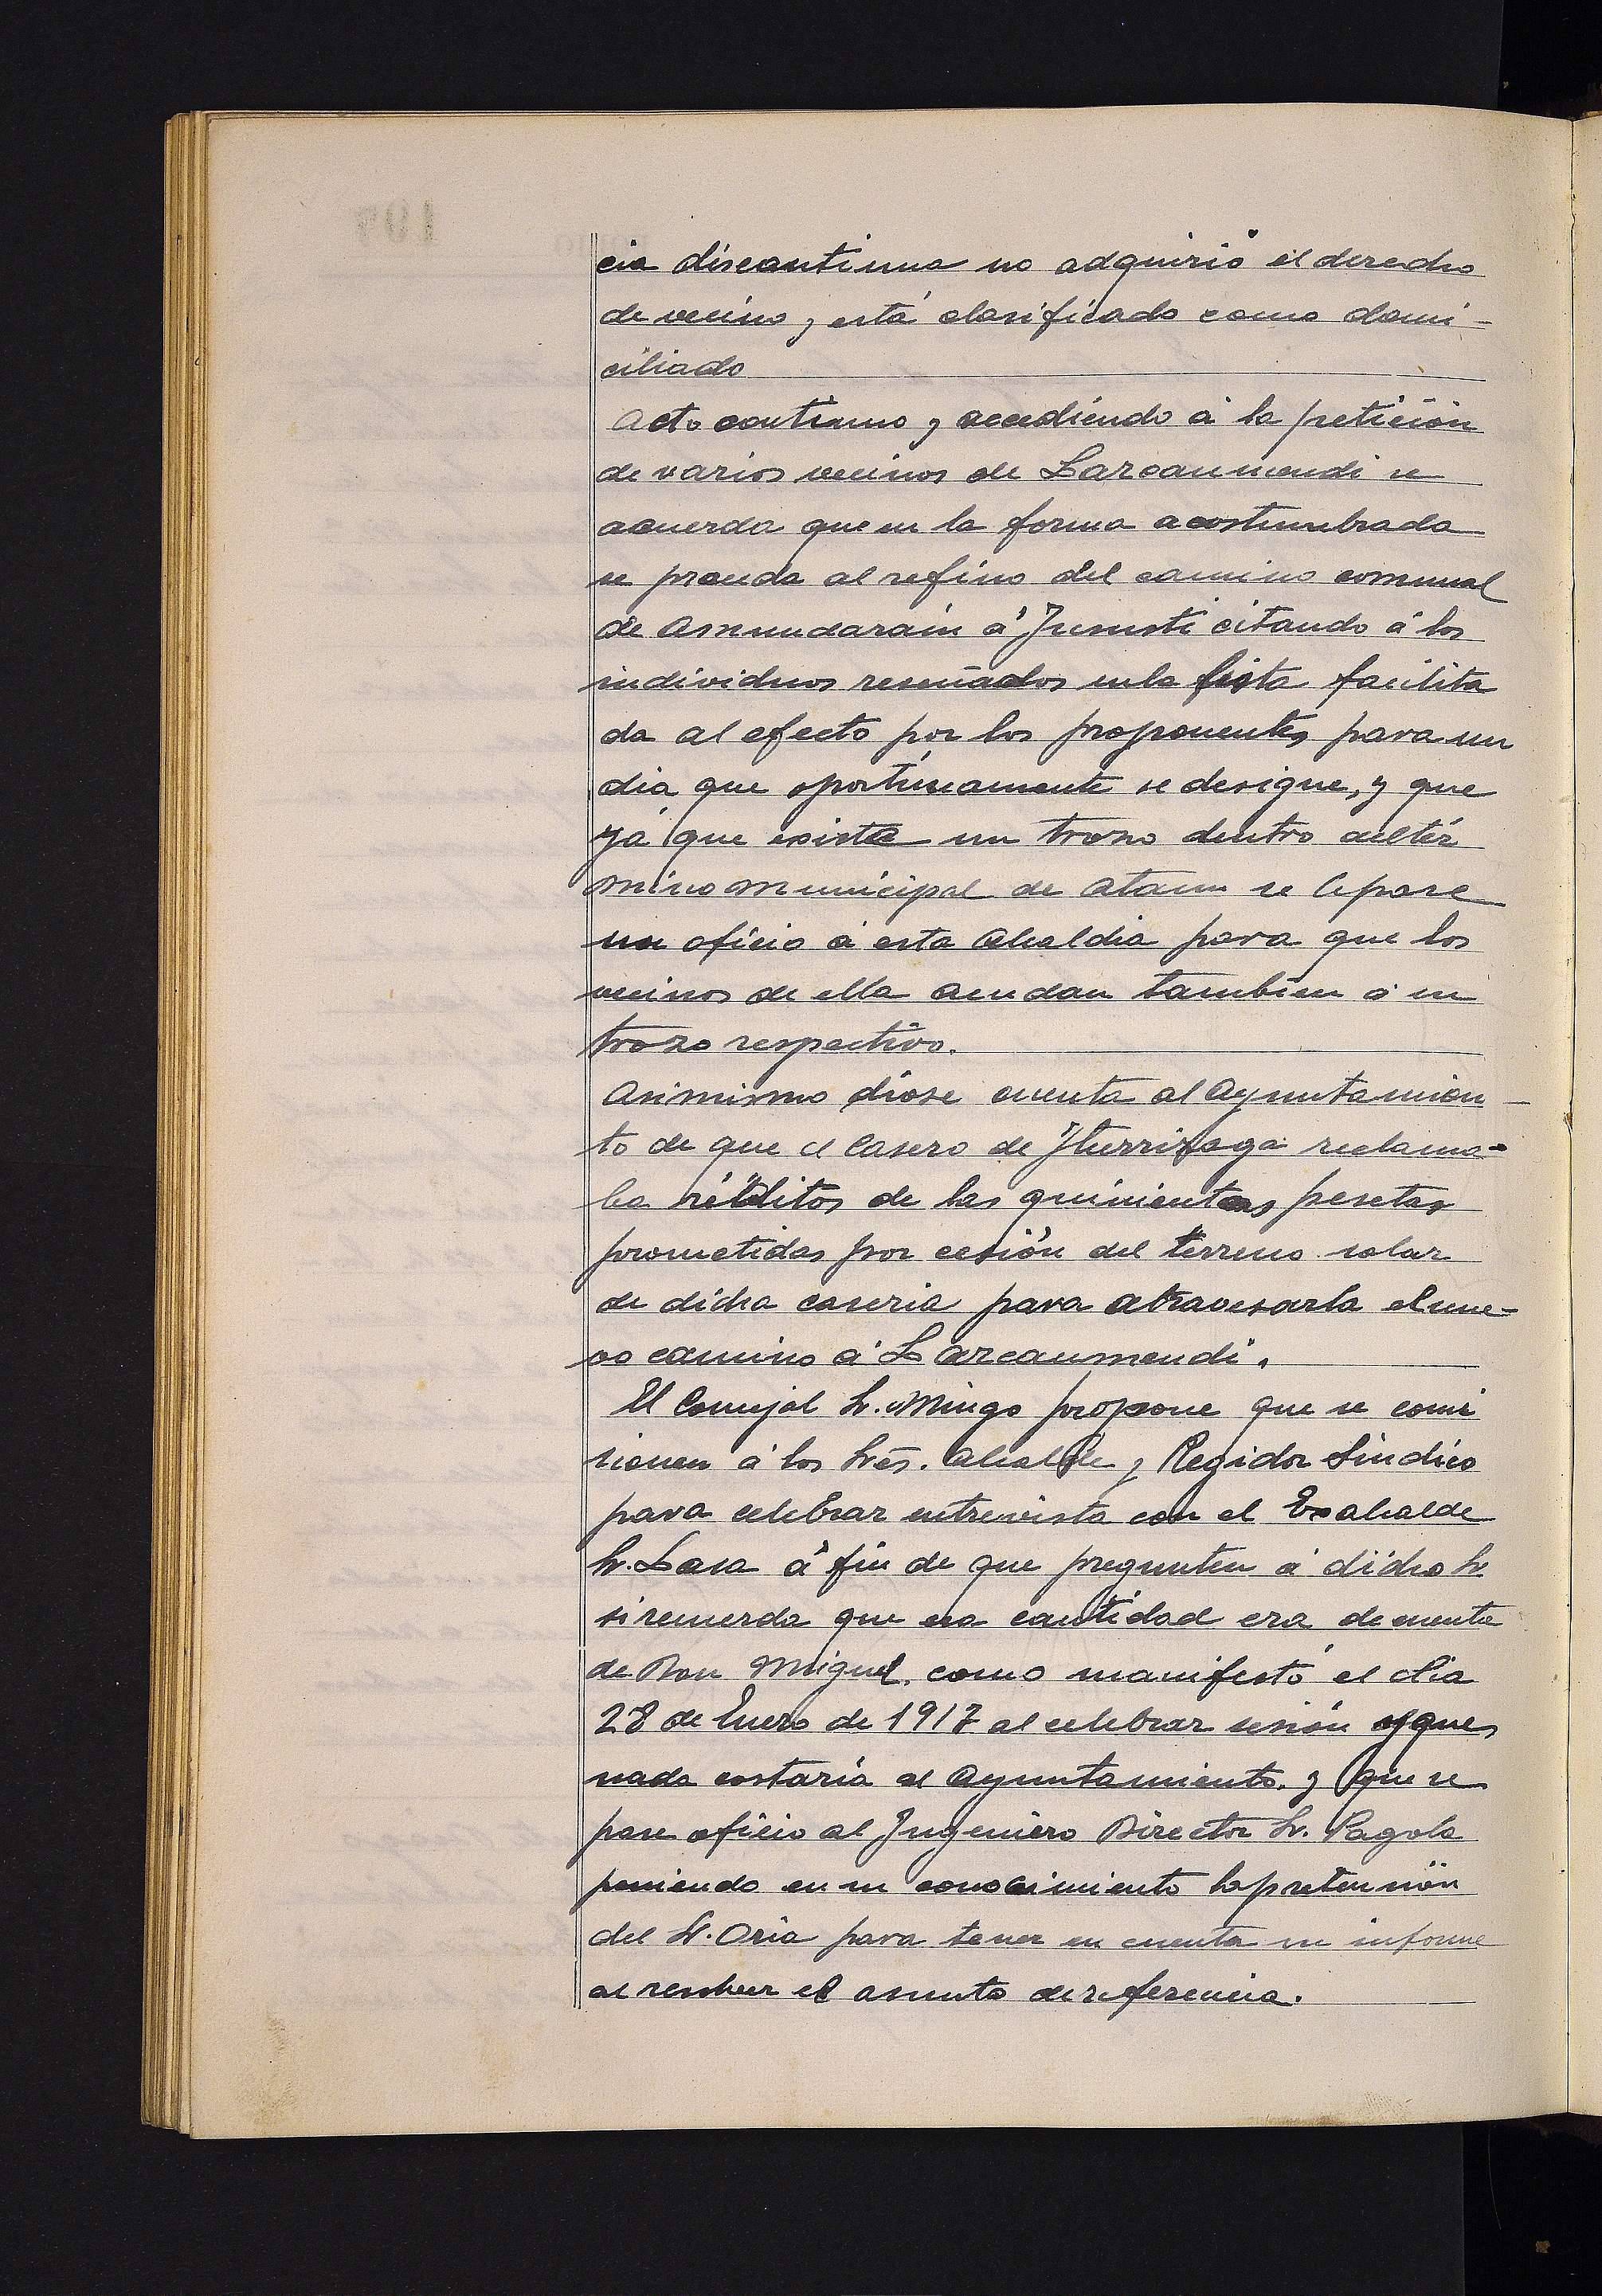 cia discontinua no adquirió el derecho
de vecino y está clasificado como domi-
ciliado
Acto continuo y accediendo á la petición
de varios vecinos de Larcaunmendi se
acuerda que en la forma acostumbrada
se proceda al refino del camino comunal
de Asmundarain á Jususti citando á los
individuos reseñados en la lista facilita
da al efecto por los proponentes para un
dia que oportúnamente se designe, y que
yá que existe un trozo dentro del tér
mino municipal de Ataun se le pase
un oficio á esta Alcaldia para que los
vecinos de ella acudan tambien á su
trozo respectivo.
Asimismo dióse cuenta al Ayuntamien-
to de que el Casero de Iturrizaga reclama-
ba réditos de las quinientas pesetas
prometidas por cesión del terreno solar
de dicha caseria para atravesarla el nue-
vo camino á Larcaunmendi.
El Concejal Sr. Mingo propone que se comi
sionen á los Sres. Alcalde y Regidor Sindico
para celebrar entrevista con el Exalcalde
Sr. Lasa á fin de que pregunten á dicho Sr.
si recuerda que esa cantidad era de cuenta
de Don Miguel, como manifestó el dia
28 de Enero de 1917 al celebrar sesión y que
nada costaria al Ayuntamiento. y que se
pase oficio al Ingeniero Director Sr. Pagola
poniendo en su conocimiento la pretensión
del Sr. Oria para tener en cuenta su informe
al resolver el asunto de referencia.